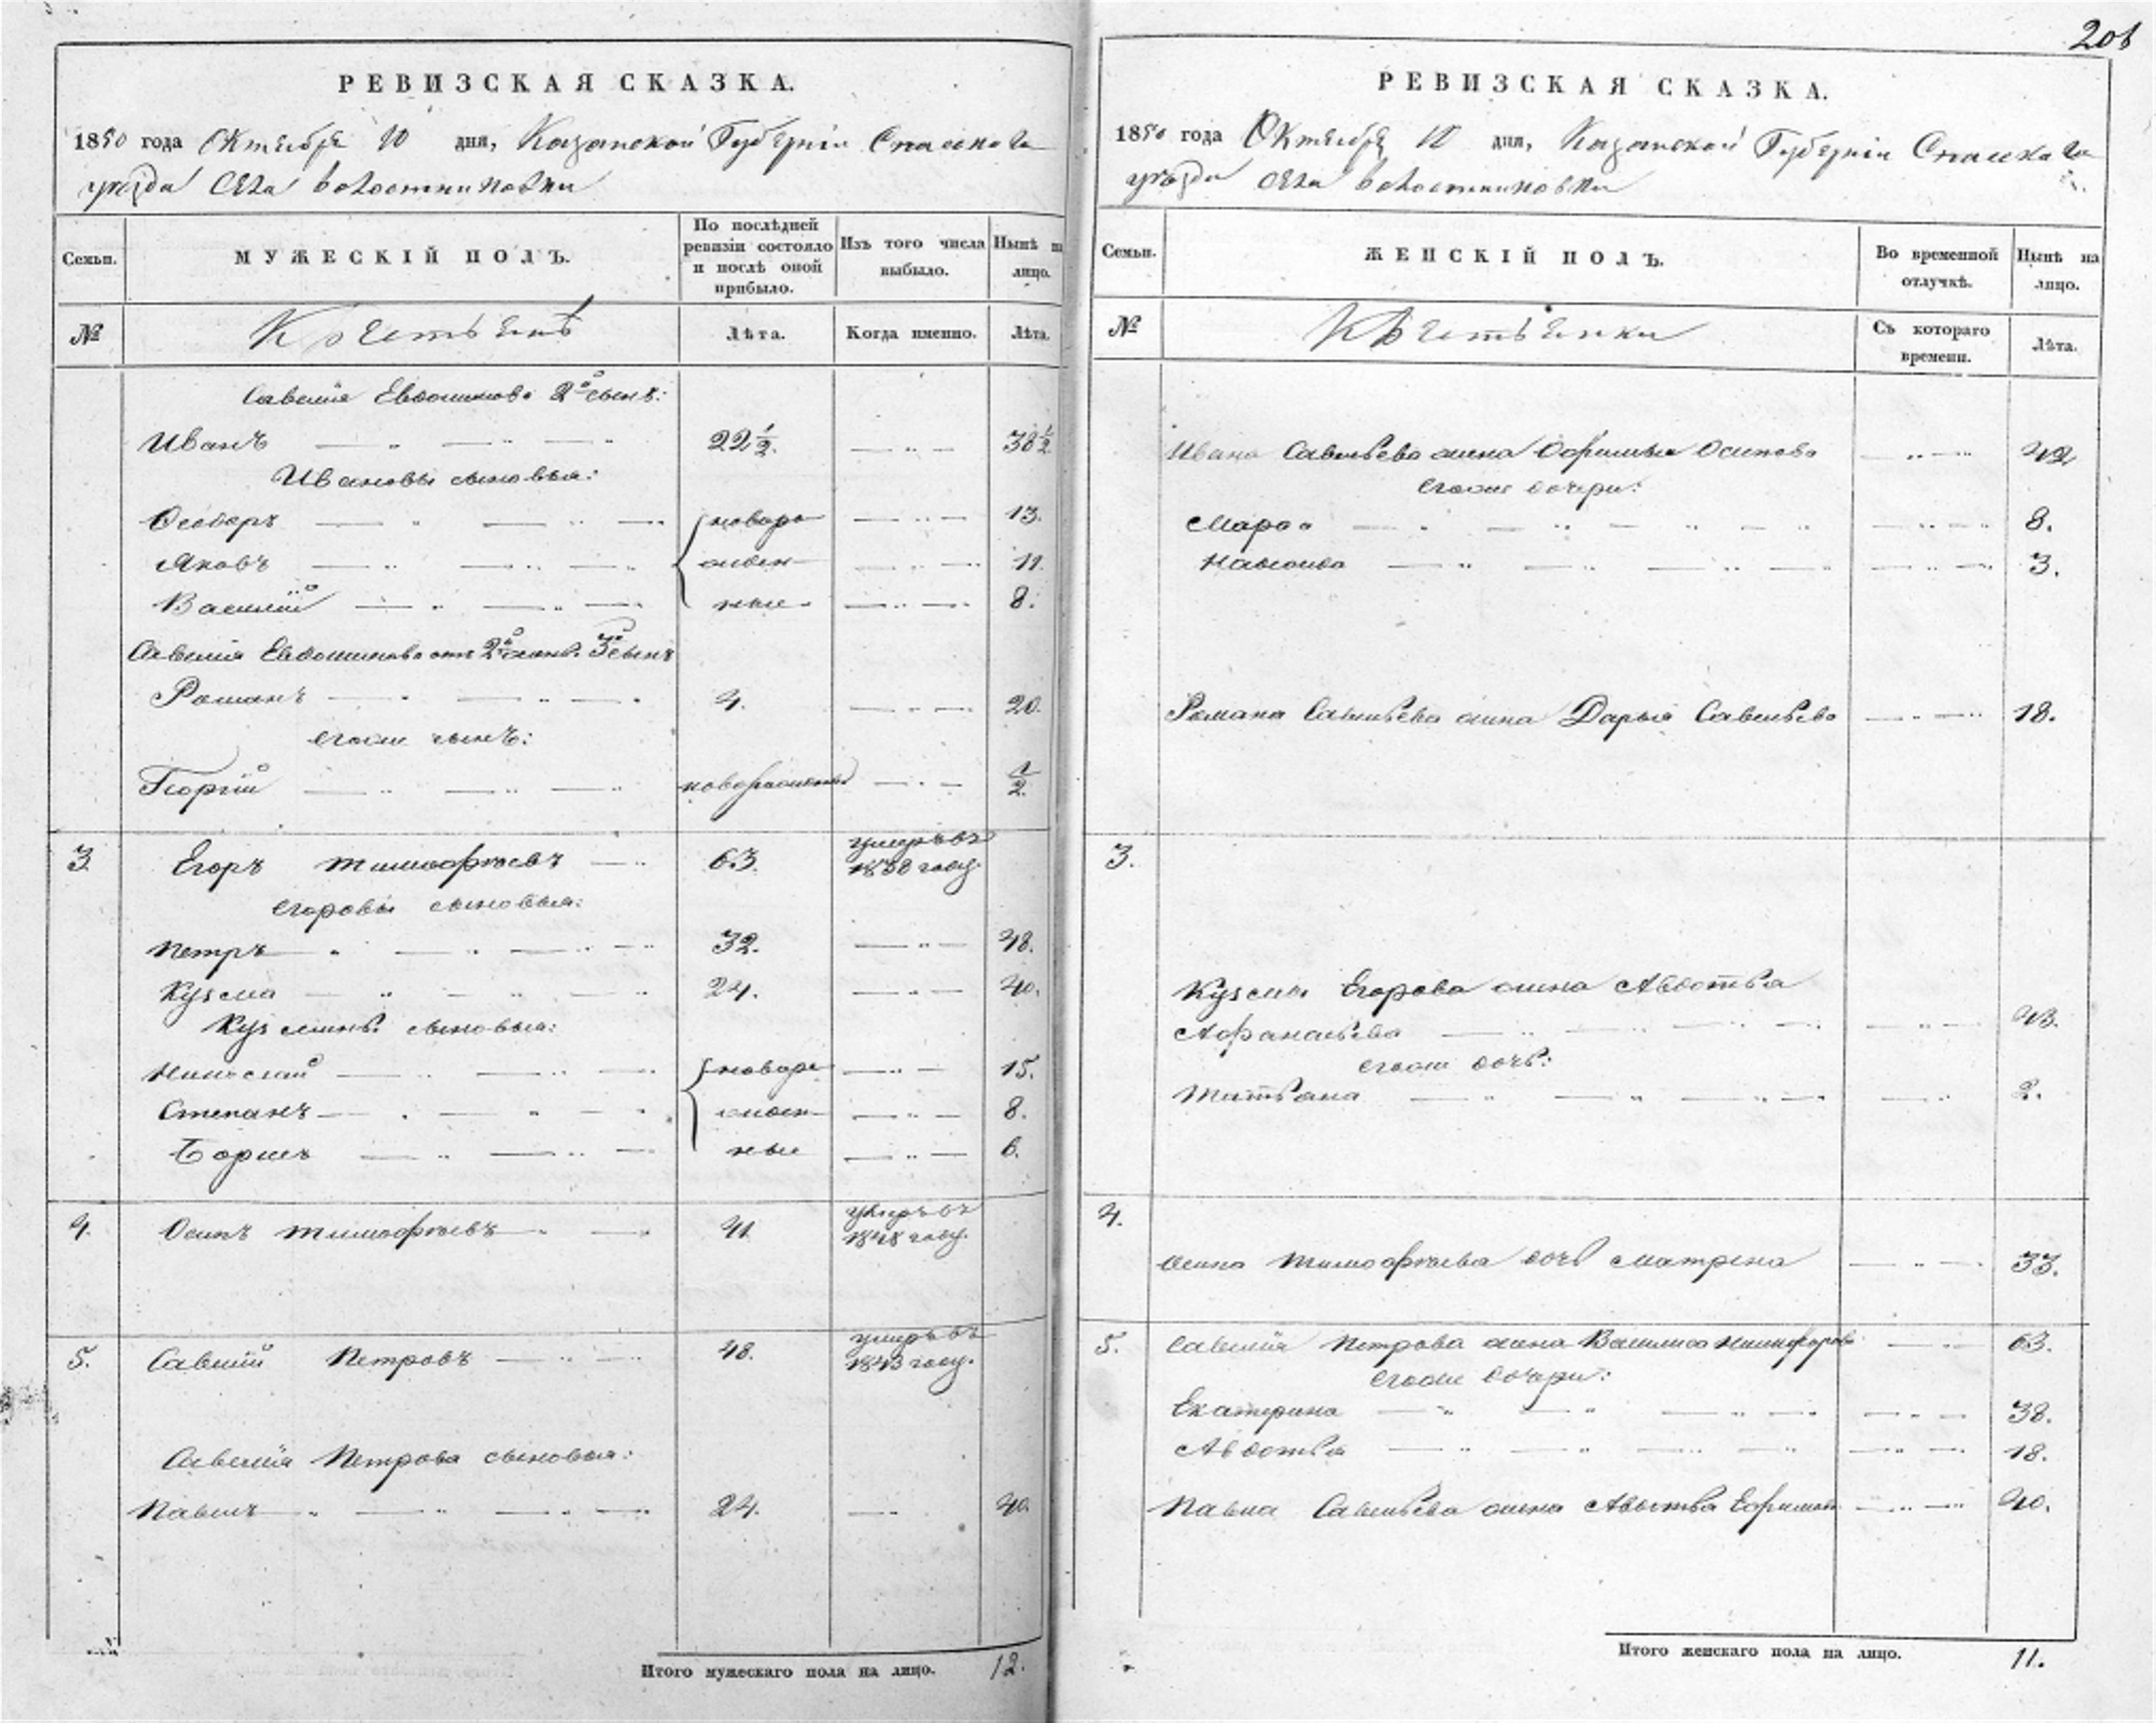 РЕВИЗСКАЯ СКАЗКА.
1850 года Октября 10 дня, Казанской Губернии Спаскаго
уѣзда села Волостниковки
Семьи. МУЖЕСКІЙ ПОЛЪ. По послѣдней ревизіи состояло и послѣ оной прибыло. Изъ того числа выбыло. Нынѣ на лицо.
№ Крестьянъ Лѣта. Когда именно. Лѣта.
Савелія Евдокимова 2й сынъ:
Иванъ 22 1/2. 38 1/2
Ивановы сыновья:
Ѳедоръ новоро 13.
Яковъ жден 11.
Василій ные 8.
Савелія Евдокимова отъ 2й жены 3й сынъ
Романъ 4. 20.
егоже сынъ:
Георгій новорожденный 1/2.
3. Егоръ Тимофѣевъ 63. умеръ въ 1838 году.
Егоровы сыновья:
Петръ 32. 48.
Кузма 24. 40.
Кузмины сыновья:
Николай новоро 15.
Степанъ жден 8.
Борисъ ные 6.
4. Осипъ Тимофѣевъ 41. умеръ въ 1848 году.
5. Савелій Петровъ 48. умеръ въ 1843 году.
Савелія Петрова сыновья:
Павелъ 24. 40.
Итого мужескаго пола на лицо. 12.
201
РЕВИЗСКАЯ СКАЗКА.
1850 года Октября 10 дня, Казанской Губерніи Спаскаго
уѣзда села Волостниковки
Семьи. ЖЕНСКІЙ ПОЛЪ. Во временной отлучкѣ. Нынѣ на лицо.
№ Крестьянки Съ котораго времени. Лѣта.
Ивана Савельева жена Офимья Осипова 42
егоже дочери:
Марѳа 8.
Настасья 3.
Романа Савельева жена Дарья Савельева 18.
3.
Кузмы Егорова жена Авдотья
Афанасьева 43.
егоже дочь:
Татьяна 2.
4.
Осипа Тимофѣева дочь Матрена 33.
5. Савелія Петрова жена Василиса Никифорова 63.
егоже дочери:
Екатерина 38.
Авдотья 18.
Павла Савельева жена Авдотья Ефимова 40.
Итого женскаго пола на лицо. 11.